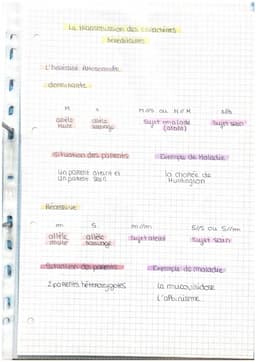 La transmission des caractères
héréditaires
L'hérédité Autosomale
dominante
M s M//s ou M//M s//s
allèle allèle Sujet malade Sujet sain
muté sauvage (atteint)
Situation des parents Exemple de Maladie
un parent atteint et la chorée de
un parent sain Huntington
Récessive
m S m//m S//S ou S//m
allèle allèle Sujet atteint Sujet sain
muté sauvage
Situation des parents Exemple de maladie
2 parents hétérozygotes la mucoviscidose
L'albinisme